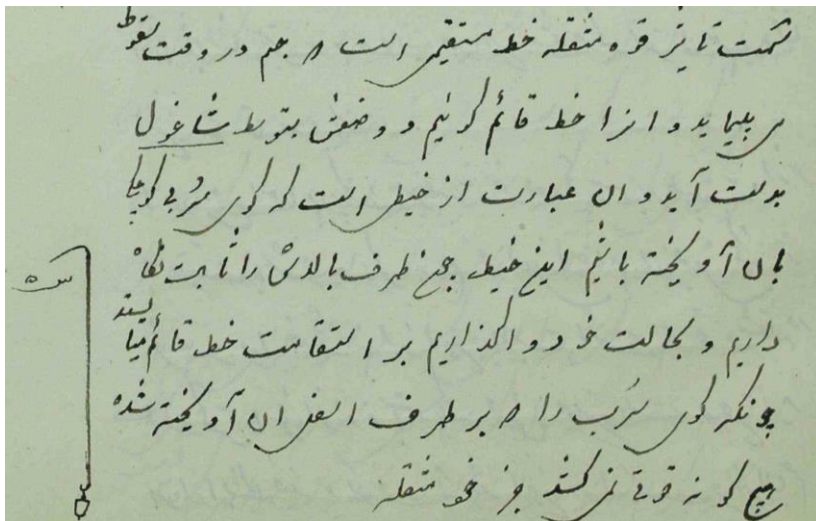 سمت تأثیر قوه مثقله خط مستقیمی است که جسم در وقت سقوط
می پیماید و انرا خط قائم گوئیم و وضعش بتوسط شاغول
بدست آید و ان عبارت از خیطی است که گوی سُربی کوچکی
بان آویخته باشیم این خیط چون طرف بالایش را ثابت نگاه
داریم و بحالت خود واگذاریم بر استقامت خط قائم میایستد
چونکه گوی سُرب را که بر طرف اسفل ان آویخته شده
هیچ گونه قوتی نمی کشد جز قوه مثقله